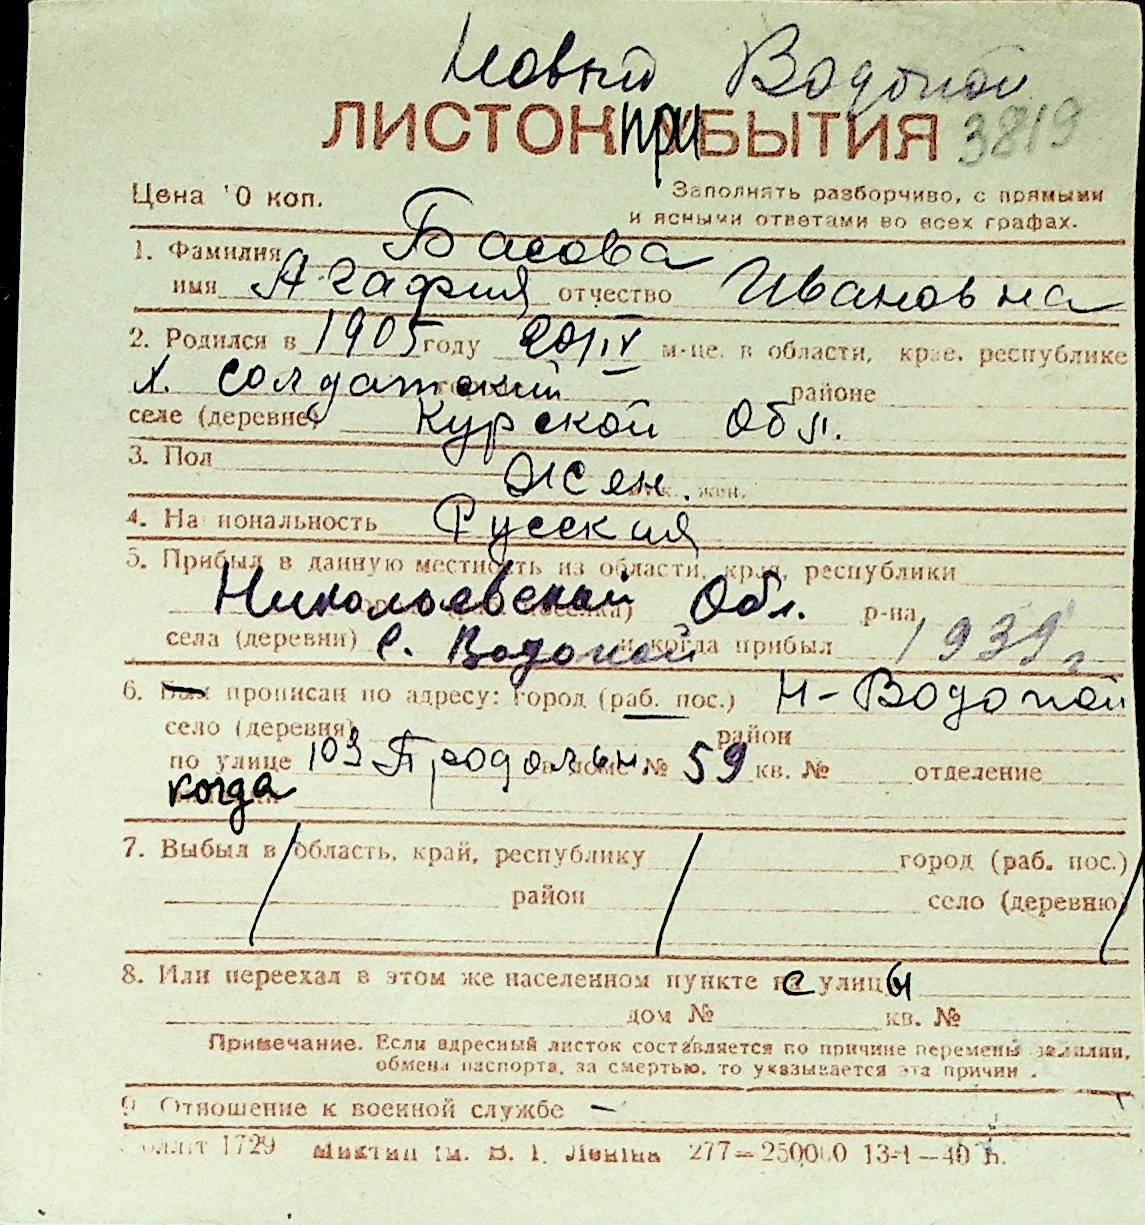 Новый Водопой
ЛИСТОК при БЫТИЯ 3819
Цена 10 коп. Заполнять разборчиво, с прямыми
и ясными ответами во всех графах.
1. Фамилия Басова
имя Агафия отчество Ивановна
2. Родился в 1905 году 20/IV м-це. в области, крае, республике
х. Солдатский районе
селе (деревне) Курской Обл.
3. Пол Жен. жен.
4. Национальность Русския
5. Прибыл в данную местность из области, края, республики
Николаевской Обл. р-на
села (деревни) с. Водопой и когда прибыл 1939 г
6. Был прописан по адресу: город (раб. пос.) Н-Водопой
село (деревня) район
по улице 103 Продольн. в доме № 59 кв. № отделение
когда
7. Выбыл в область, край, республику город (раб. пос.)
район село (деревню)
8. Или переехал в этом же населенном пункте с улицы
дом № кв. №
Примечание. Если адресный листок составляется по причине перемены фамилии,
обмена паспорта, за смертью, то указывается эта причин
9 Отношение к военной службе —
1729 им. В. І. Леніна 277—250000 13-1—40